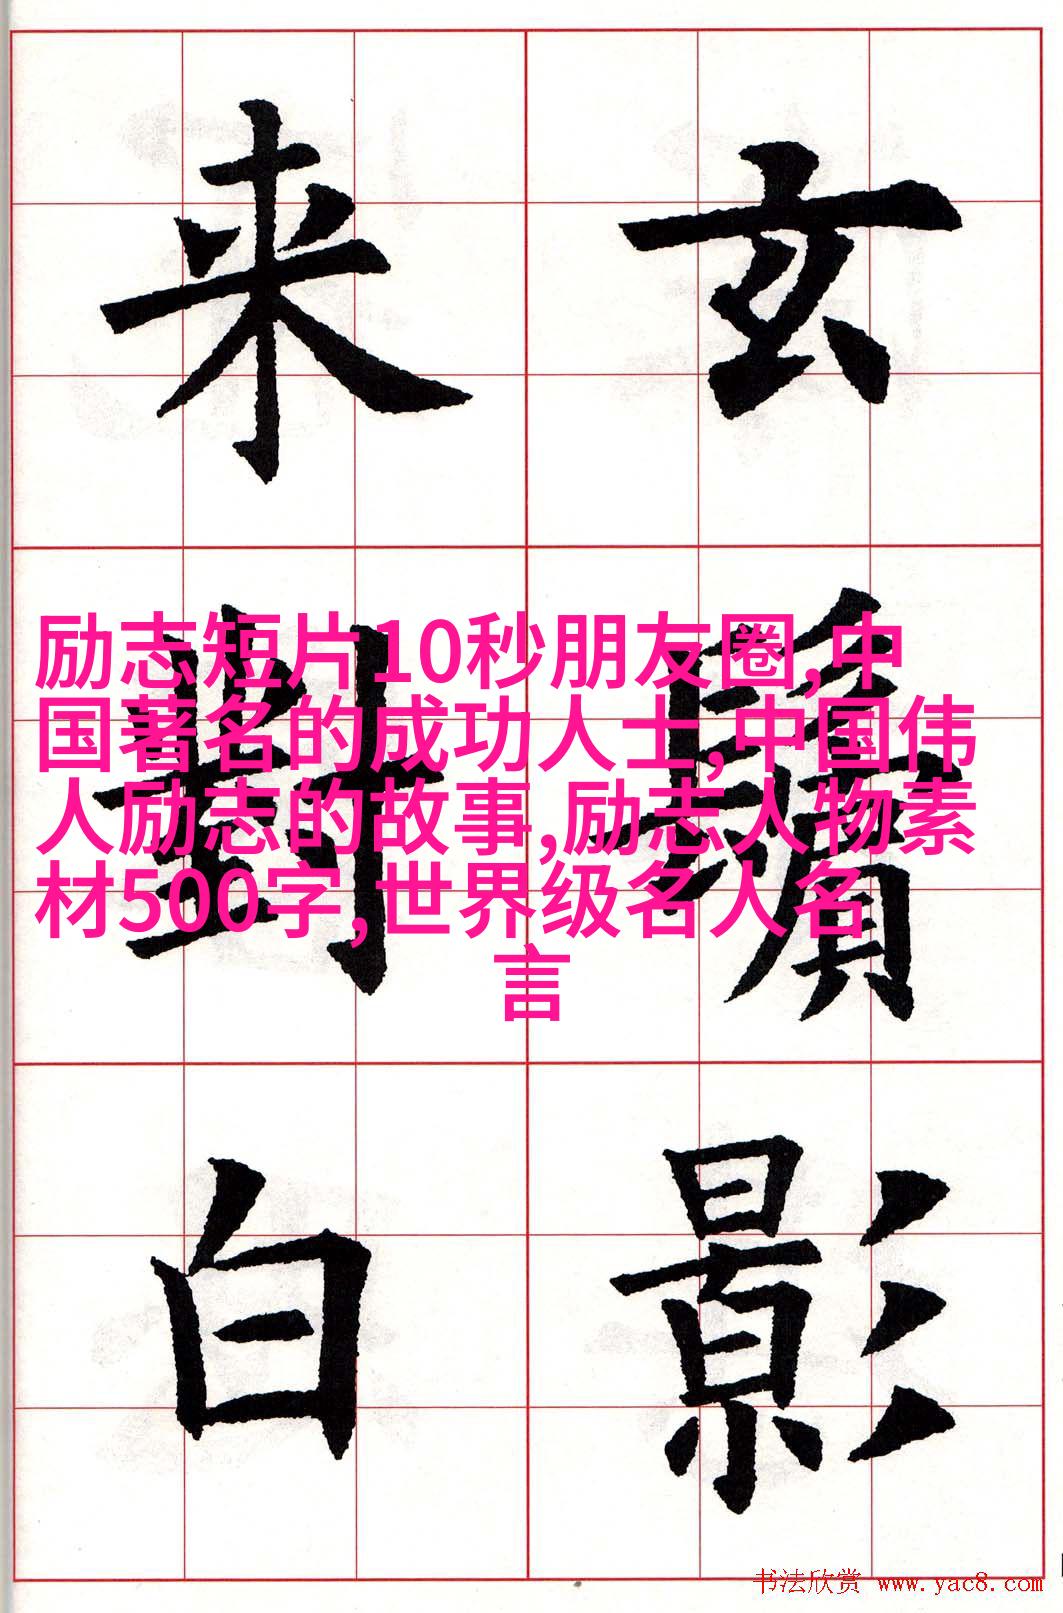 玄鬢影
来對白
励志短片10秒朋友圈,中
国著名的成功人士,中国伟
人励志的故事,励志人物素
材500字,世界级名人名
言
书法欣赏 www.yac8.com